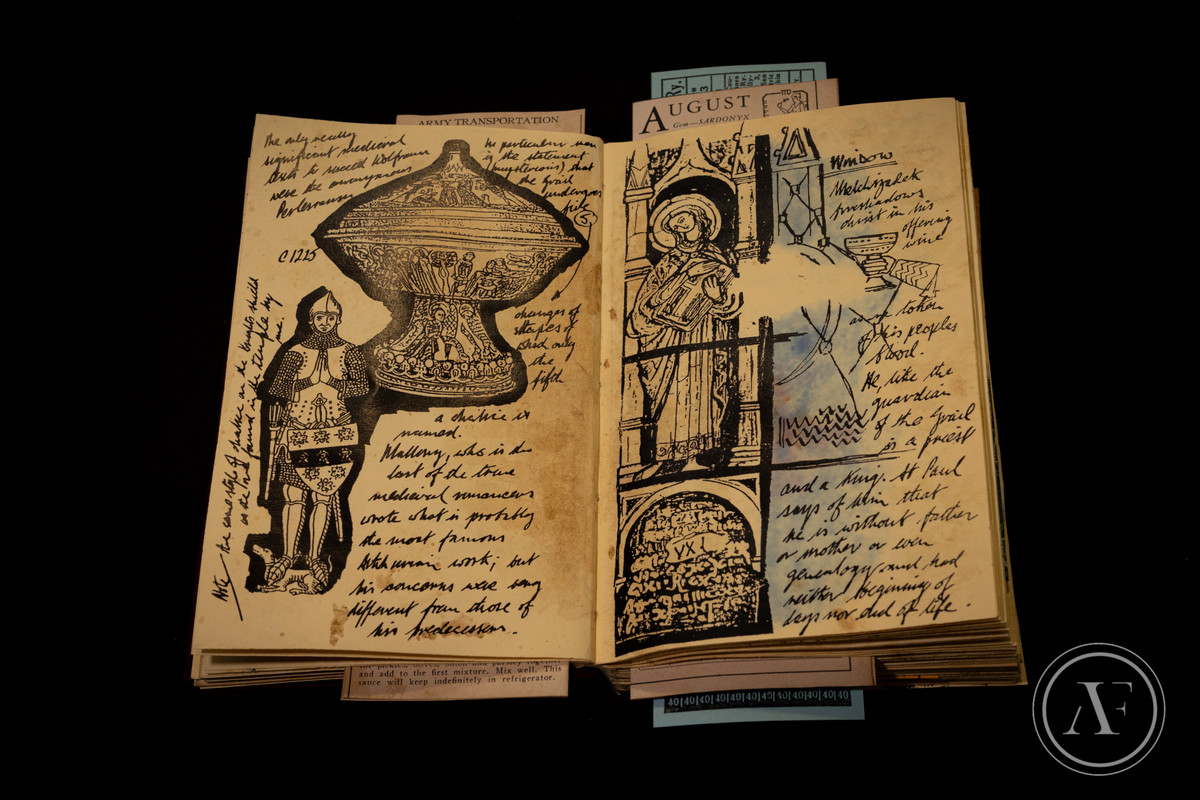 ARMY TRANSPORTATION
The only really
significant medieval
texts to succeed Wolfram
were the anonymous
Perlesvaus
he particular
is the statement
(mysterious) that
the Grail
undergoes
five
(5)
changes of
shapes of
which only
the
fifth
a chalice is
named.
C 1225
Mallory, who is the
last of the true
medieval romancers
wrote what is probably
the most famous
Arthurian work; but
his concerns were very
different from those of
his predecessors.
Note the same style of
found in the temple by
me.
and add to the first mixture. Mix well. This
sauce will keep indefinitely in refrigerator.
Ry.
AUGUST
Gem—SARDONYX
Window
Melchizedek
foreshadows
Christ in his
offering
wine
as a token
of his peoples
blood.
He, like the
guardian
of the Grail
is a priest
and a King. St Paul
says of him that
he is without father
or mother or even
genealogy and had
neither beginning of
days nor end of life.
40 40 40 40 40 40 40 40 40 40 40 40
AF